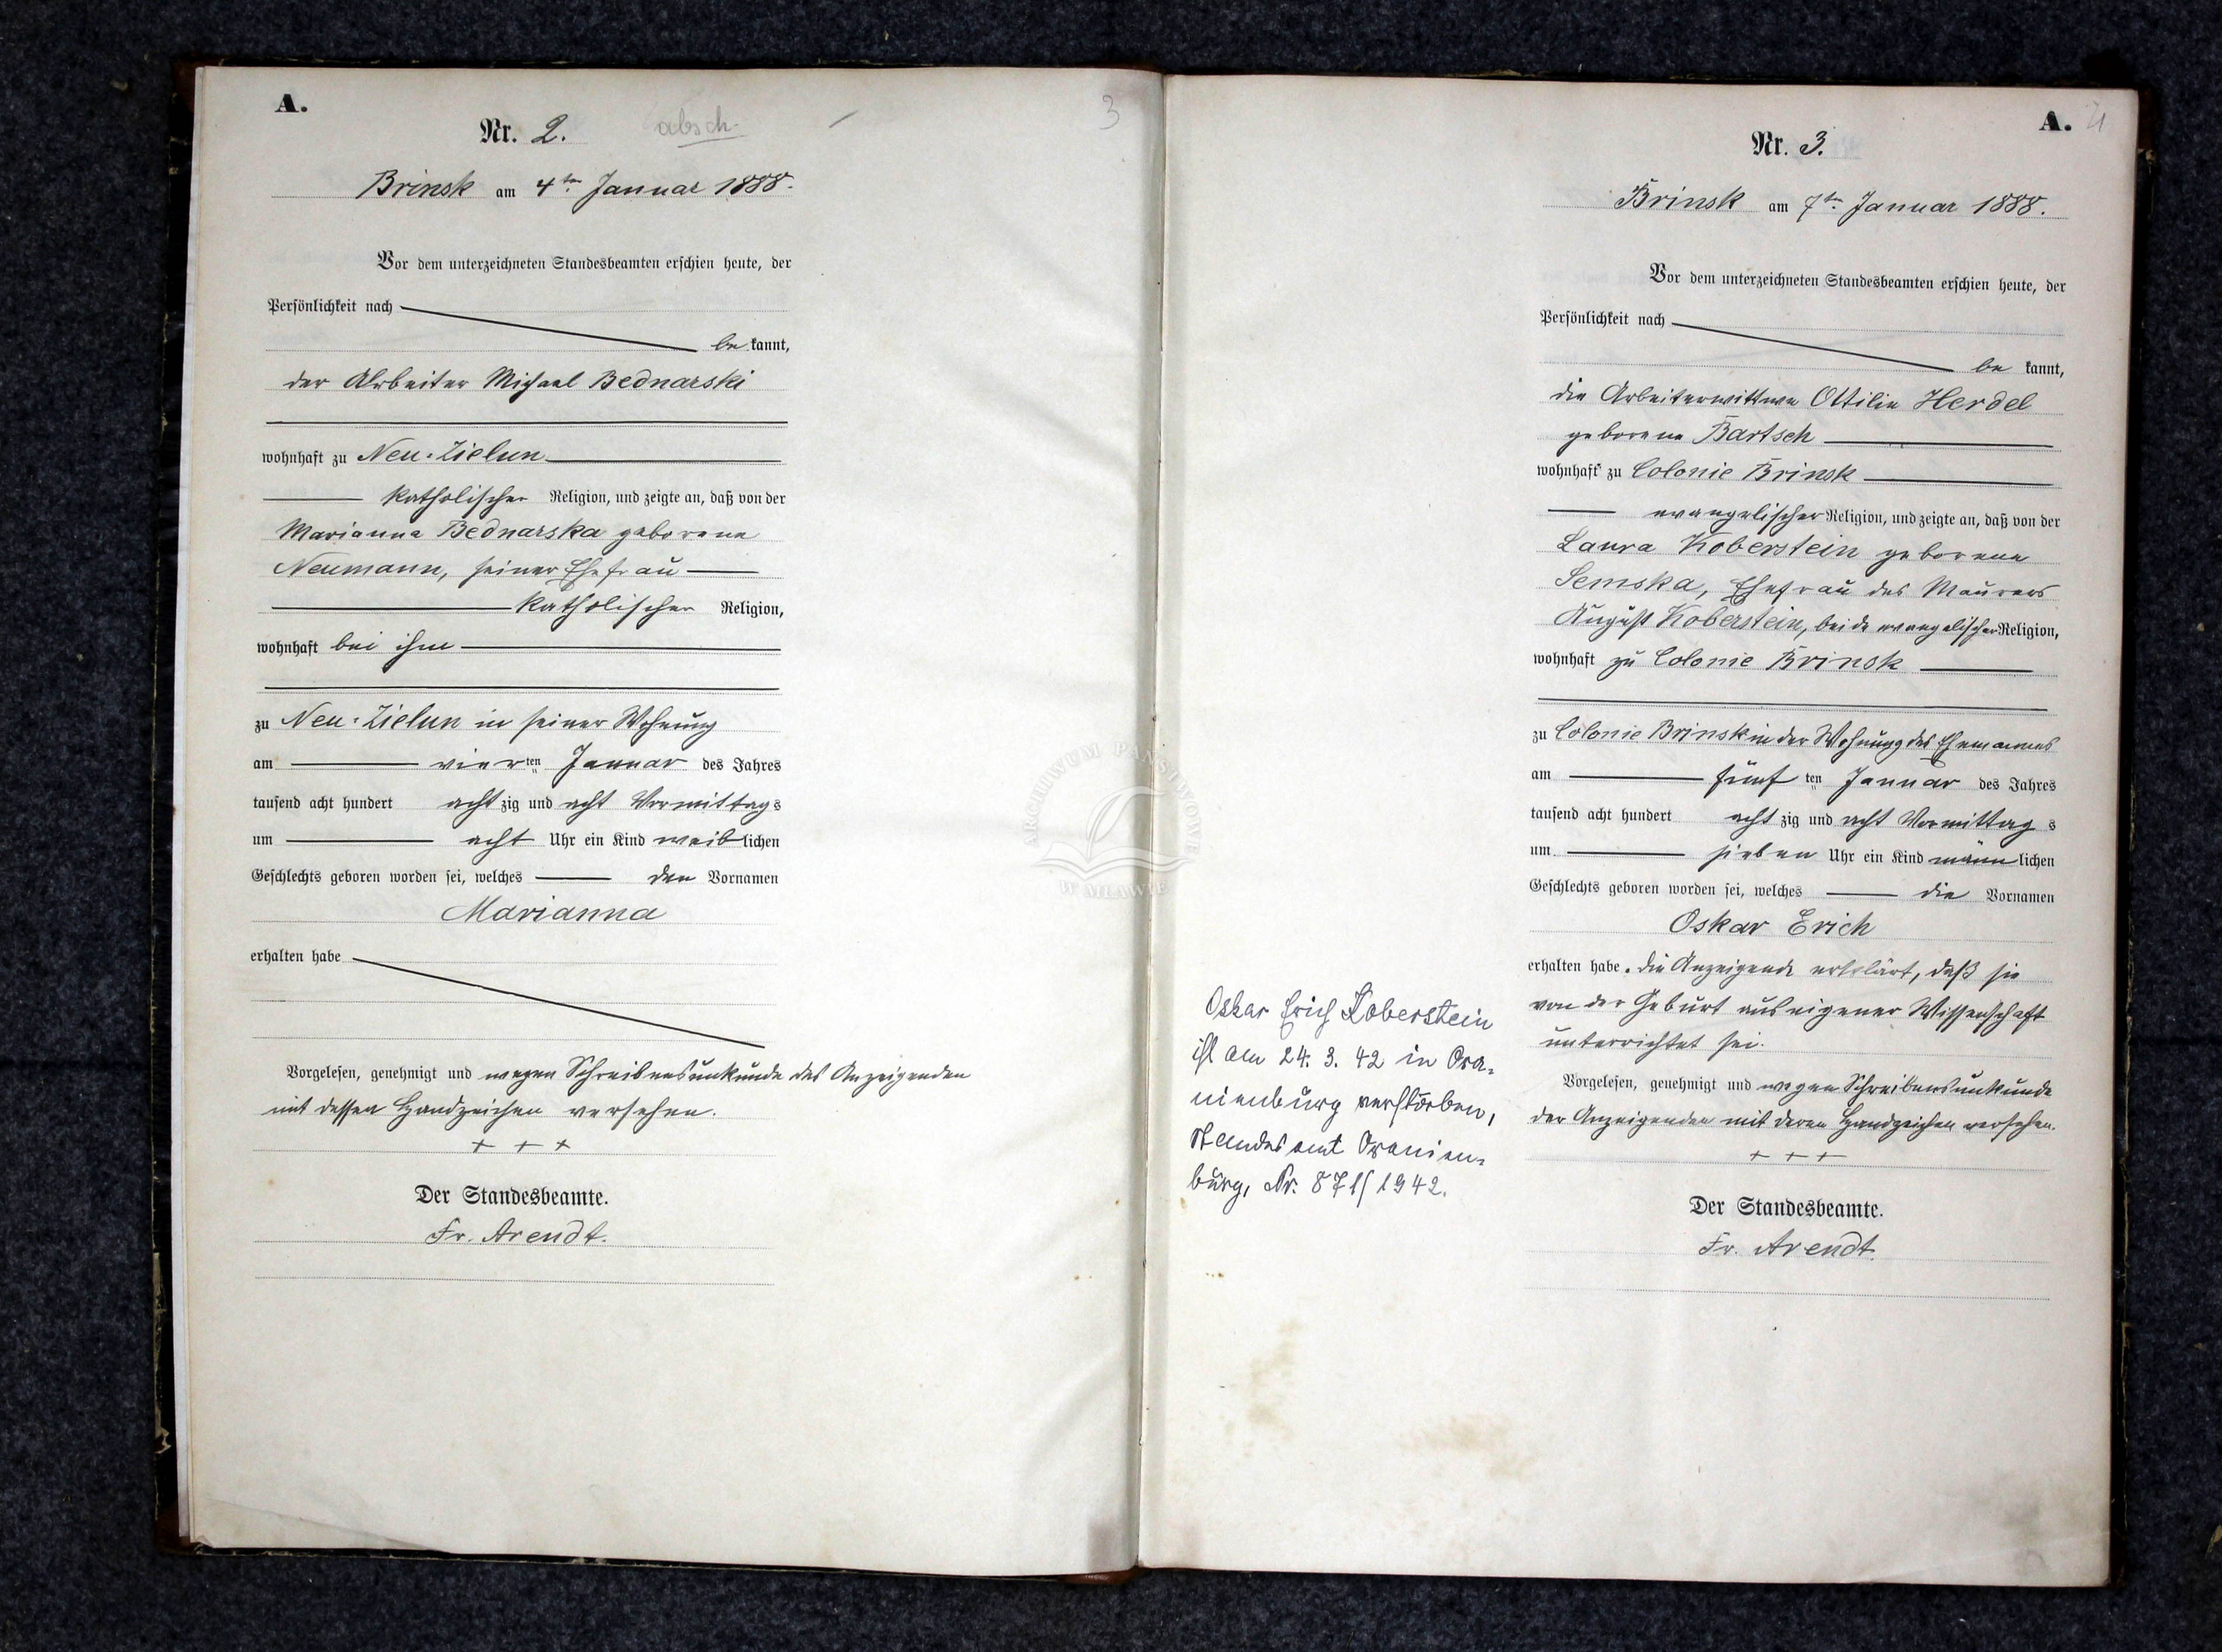 A.
Nr. 2. absch.
3
Brinsk am 4ten Januar 1888.
Vor dem unterzeichneten Standesbeamten erschien heute, der
Persönlichkeit nach
be kannt,
der Arbeiter Michael Bednarski
wohnhaft zu Neu-Zielun
katholischer Religion, und zeigte an, daß von der
Marianna Bednarska geborene
Neumann, seiner Ehefrau
katholischer Religion,
wohnhaft bei ihm
zu Neu-Zielun in seiner Wohnung
am vierten Januar des Jahres
tausend acht hundert acht zig und acht Vormittags
um acht Uhr ein Kind weiblichen
Geschlechts geboren worden sei, welches den Vornamen
Marianna
erhalten habe
Vorgelesen, genehmigt und wegen Schreibensunkunde des Anzeigenden
mit dessen Handzeichen versehen.
+ + +
Der Standesbeamte.
Fr. Arendt.
ARCHIWUM PAŃSTWOWE
W MŁAWIE
A. 4
Nr. 3.
Brinsk am 7ten Januar 1888.
Vor dem unterzeichneten Standesbeamten erschien heute, der
Persönlichkeit nach
be kannt,
die Arbeiterwittwe Ottilie Herdel
geborene Bartsch
wohnhaft zu Colonie Brinsk
evangelischer Religion, und zeigte an, daß von der
Laura Koberstein geborene
Semska, Ehefrau des Maurers
August Koberstein, beide evangelischer Religion,
wohnhaft zu Colonie Brinsk
zu Colonie Brinsk in der Wohnung des Ehemannes
am fünf ten Januar des Jahres
tausend acht hundert acht zig und acht Vormittag s
um sieben Uhr ein Kind männ lichen
Geschlechts geboren worden sei, welches die Vornamen
Oskar Erich
erhalten habe. Die Anzeigende erklärt, daß sie
von der Geburt aus eigener Wissenschaft
unterrichtet sei.
Vorgelesen, genehmigt und wegen Schreibensunkunde
der Anzeigenden mit deren Handzeichen versehen.
+ + +
Der Standesbeamte.
Fr. Arendt.
Oskar Erich Koberstein
ist am 24. 3. 42 in Ora-
nienburg verstorben,
Standesamt Oranien-
burg, Nr. 871/1942.